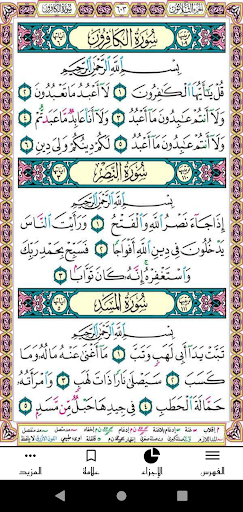 سُورَةُ الكَافِرُونَ
٦٠٣
سُورَةُ الكَافِرُونَ
بِسْمِ اللَّهِ الرَّحْمَٰنِ الرَّحِيمِ
قُلْ يَٰٓأَيُّهَا ٱلْكَٰفِرُونَ ١ لَآ أَعْبُدُ مَا تَعْبُدُونَ ٢
وَلَآ أَنتُمْ عَٰبِدُونَ مَآ أَعْبُدُ ٣ وَلَآ أَنَا۠ عَابِدٌ مَّا عَبَدتُّمْ ٤
وَلَآ أَنتُمْ عَٰبِدُونَ مَآ أَعْبُدُ ٥ لَكُمْ دِينُكُمْ وَلِىَ دِينِ ٦
سُورَةُ النَّصْرِ
بِسْمِ اللَّهِ الرَّحْمَٰنِ الرَّحِيمِ
إِذَا جَآءَ نَصْرُ ٱللَّهِ وَٱلْفَتْحُ ١ وَرَأَيْتَ ٱلنَّاسَ
يَدْخُلُونَ فِى دِينِ ٱللَّهِ أَفْوَاجًا ٢ فَسَبِّحْ بِحَمْدِ رَبِّكَ
وَٱسْتَغْفِرْهُ إِنَّهُۥ كَانَ تَوَّابًۢا ٣
سُورَةُ المَسَدِ
بِسْمِ اللَّهِ الرَّحْمَٰنِ الرَّحِيمِ
تَبَّتْ يَدَآ أَبِى لَهَبٍ وَتَبَّ ١ مَآ أَغْنَىٰ عَنْهُ مَالُهُۥ وَمَا
كَسَبَ ٢ سَيَصْلَىٰ نَارًا ذَاتَ لَهَبٍ ٣ وَٱمْرَأَتُهُۥ
حَمَّالَةَ ٱلْحَطَبِ ٤ فِى جِيدِهَا حَبْلٌ مِّن مَّسَدٍۭ ٥
الفهرس
الأجزاء
علامة
المزيد